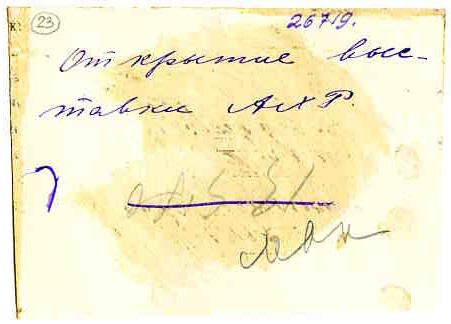 23
26719.
Открытие выс-
тавки АХР.